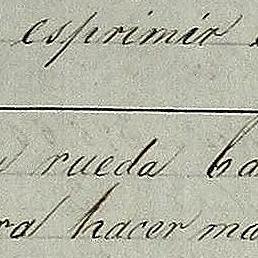 esprimir
rueda ba
ra hacer ma